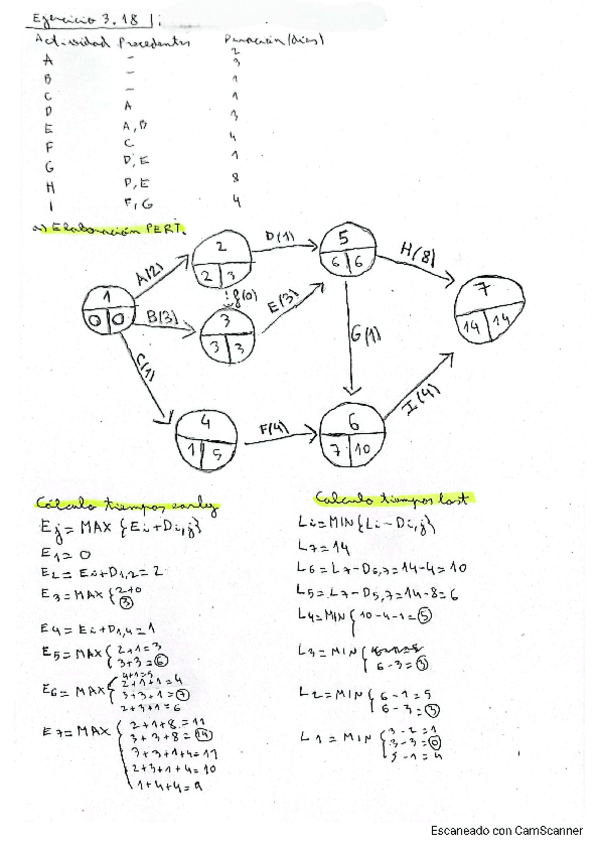 Ejercicio 3.18 |:
Actividad Precedentes Duración (días)
A - 2
B - 3
C - 1
D A 1
E A, B 3
F C 4
G D, E 1
H D, E 8
I F, G 4
a) Elaboración PERT.
1
0 0
A(2)
B(3)
C(1)
2
2 3
f(0)
3
3 3
D(1)
E(3)
4
1 5
F(4)
5
6 6
G(1)
H(8)
6
7 10
I(4)
7
14 14
Cálculo tiempos early
Ej = MAX {Ei + Di,j}
E1 = 0
E2 = Ei + D1,2 = 2
E3 = MAX { 2+0
3
E4 = Ei + D1,4 = 1
E5 = MAX { 2+1 = 3
3+3 = 6
E6 = MAX { 4+1=5
2+1+1 = 4
3+3+1 = 7
2+3+1 = 6
E7 = MAX { 2+1+8 = 11
3+3+8 = 14
3+3+1+4 = 11
2+3+1+4 = 10
1+4+4 = 9
Calculo tiempos last
Li = MIN {Li - Di,j}
L7 = 14
L6 = L7 - D6,7 = 14-4 = 10
L5 = L7 - D5,7 = 14-8 = 6
L4 = MIN { 10-4-1 = 5
L3 = MIN {
6-3 = 3
L2 = MIN { 6-1 = 5
6-3 = 3
L1 = MIN { 3-2 = 1
3-3 = 0
5-1 = 4
Escaneado con CamScanner